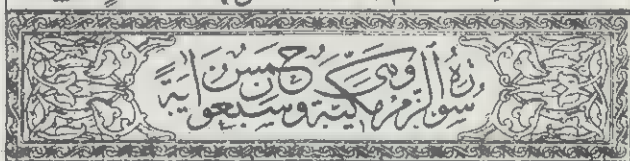 سُورَةُ الزُّمَرِ مَكِّيَّةٌ وَهِيَ خَمْسٌ وَسَبْعُونَ اٰيَةً